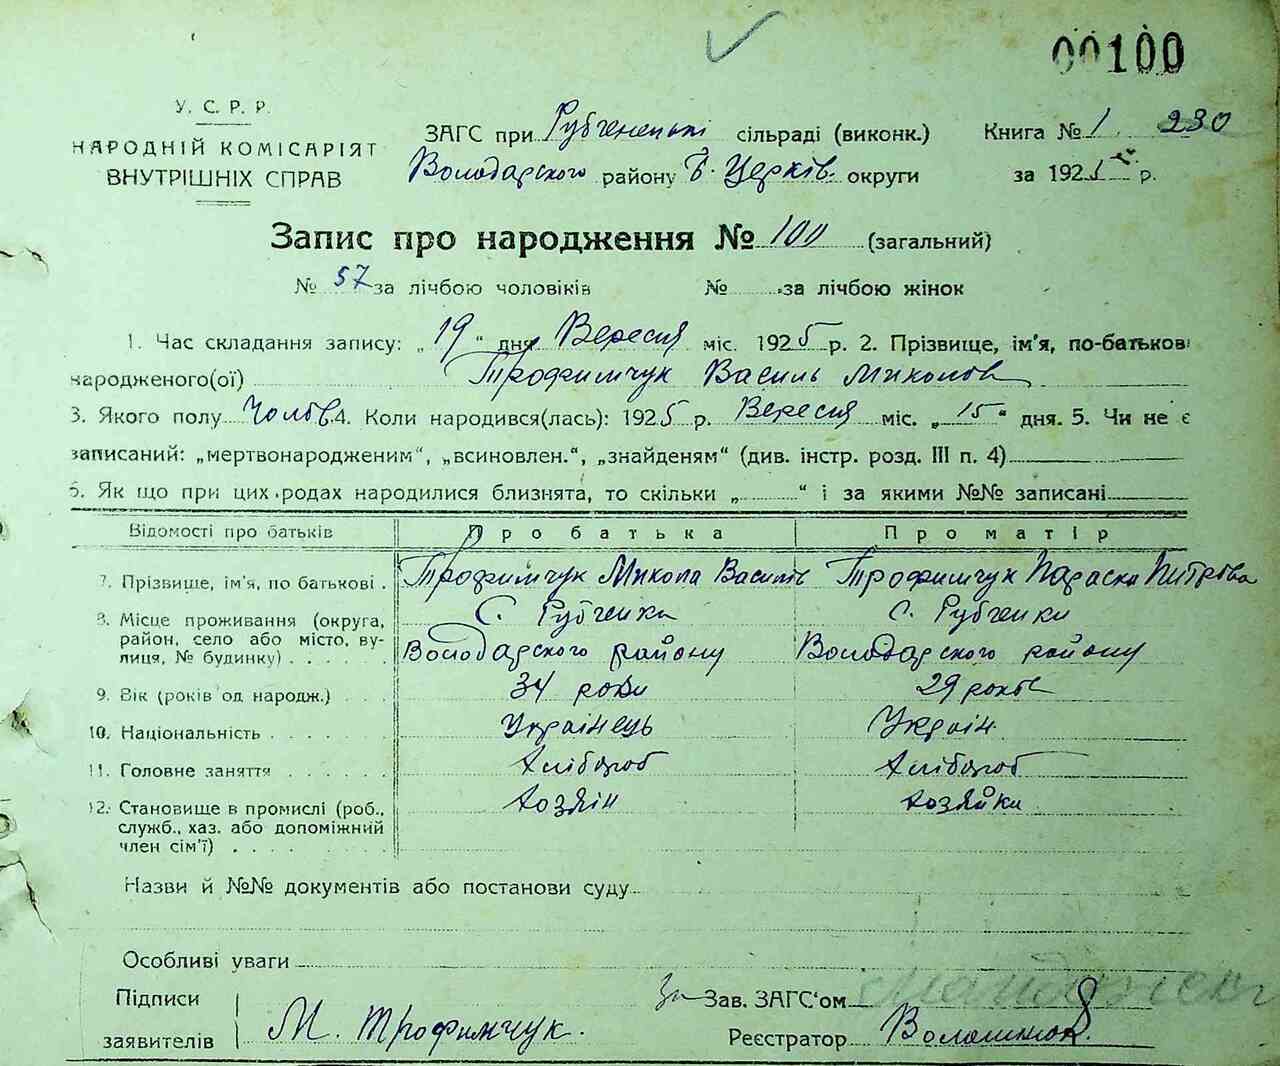 00100
У. С. Р. Р.
НАРОДНІЙ КОМІСАРІЯТ
ВНУТРІШНІХ СПРАВ
ЗАГС при Рубченські сільраді (виконк.) Книга № 1 230
Володарского району Б. Церків. округи за 1925 р.
Запис про народження № 100 (загальний)
№ 57 за лічбою чоловіків № за лічбою жінок
1. Час складання запису: „ 19 “ дня Вересня міс. 1925 р. 2. Прізвище, ім'я, по-батькові
народженого(ої) Трофимчук Василь Миколов
3. Якого полу Чолов 4. Коли народився(лась): 1925 р. Вересня міс. „ 15 “ дня. 5. Чи не є
записаний: „мертвонародженим“, „всиновлен.“, „знайденям“ (див. інстр. розд. III п. 4)
6. Як що при цих родах народилися близнята, то скільки „ “ і за якими №№ записані
Відомості про батьків Про батька Про матір
7. Прізвище, ім'я, по батькові . Трофимчук Микола Василів Трофимчук Параска Петрова
8. Місце проживання (округа, С. Рубченка С. Рубченки
район, село або місто, ву-
лиця, № будинку) . . . . . Володарского району Володарского району
9. Вік (років од народж.) . . . 34 роки 29 років
10. Національність . . . . . . Українець Україн.
11. Головне заняття . . . . . Хлібороб Хлібороб
12. Становище в промислі (роб., Хозяїн Хозяйка
служб., хаз. або допоміжний
член сім'ї) . . . . . . . .
Назви й №№ документів або постанови суду
Особливі уваги
Підписи За Зав. ЗАГС'ом
заявителів М. Трофимчук. Реєстратор